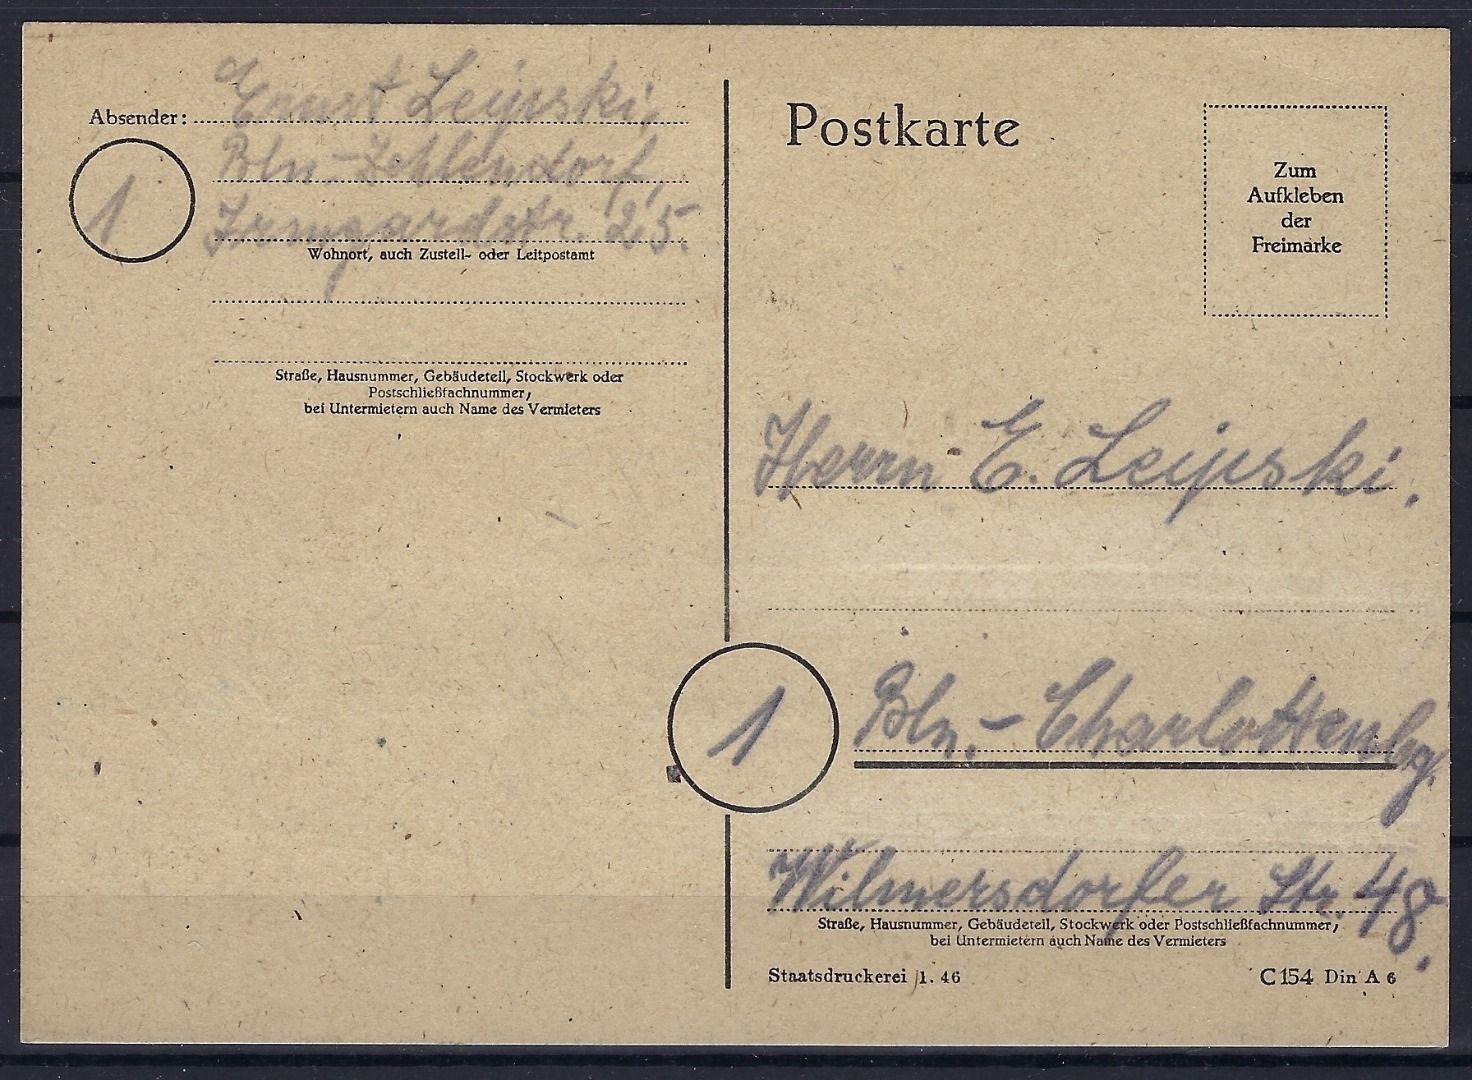 Absender: Ernst Leipski,
1
Bln.-Zehlendorf,
Irmgardstr. 25.
Wohnort, auch Zustell- oder Leitpostamt
Straße, Hausnummer, Gebäudeteil, Stockwerk oder
Postschließfachnummer,
bei Untermietern auch Name des Vermieters
Postkarte
Zum
Aufkleben
der
Freimarke
Herrn E. Leipski.
1
Bln.-Charlottenbg.
Wilmersdorfer Str. 48.
Straße, Hausnummer, Gebäudeteil, Stockwerk oder Postschließfachnummer,
bei Untermietern auch Name des Vermieters
Staatsdruckerei 1. 46
C 154 Din A 6